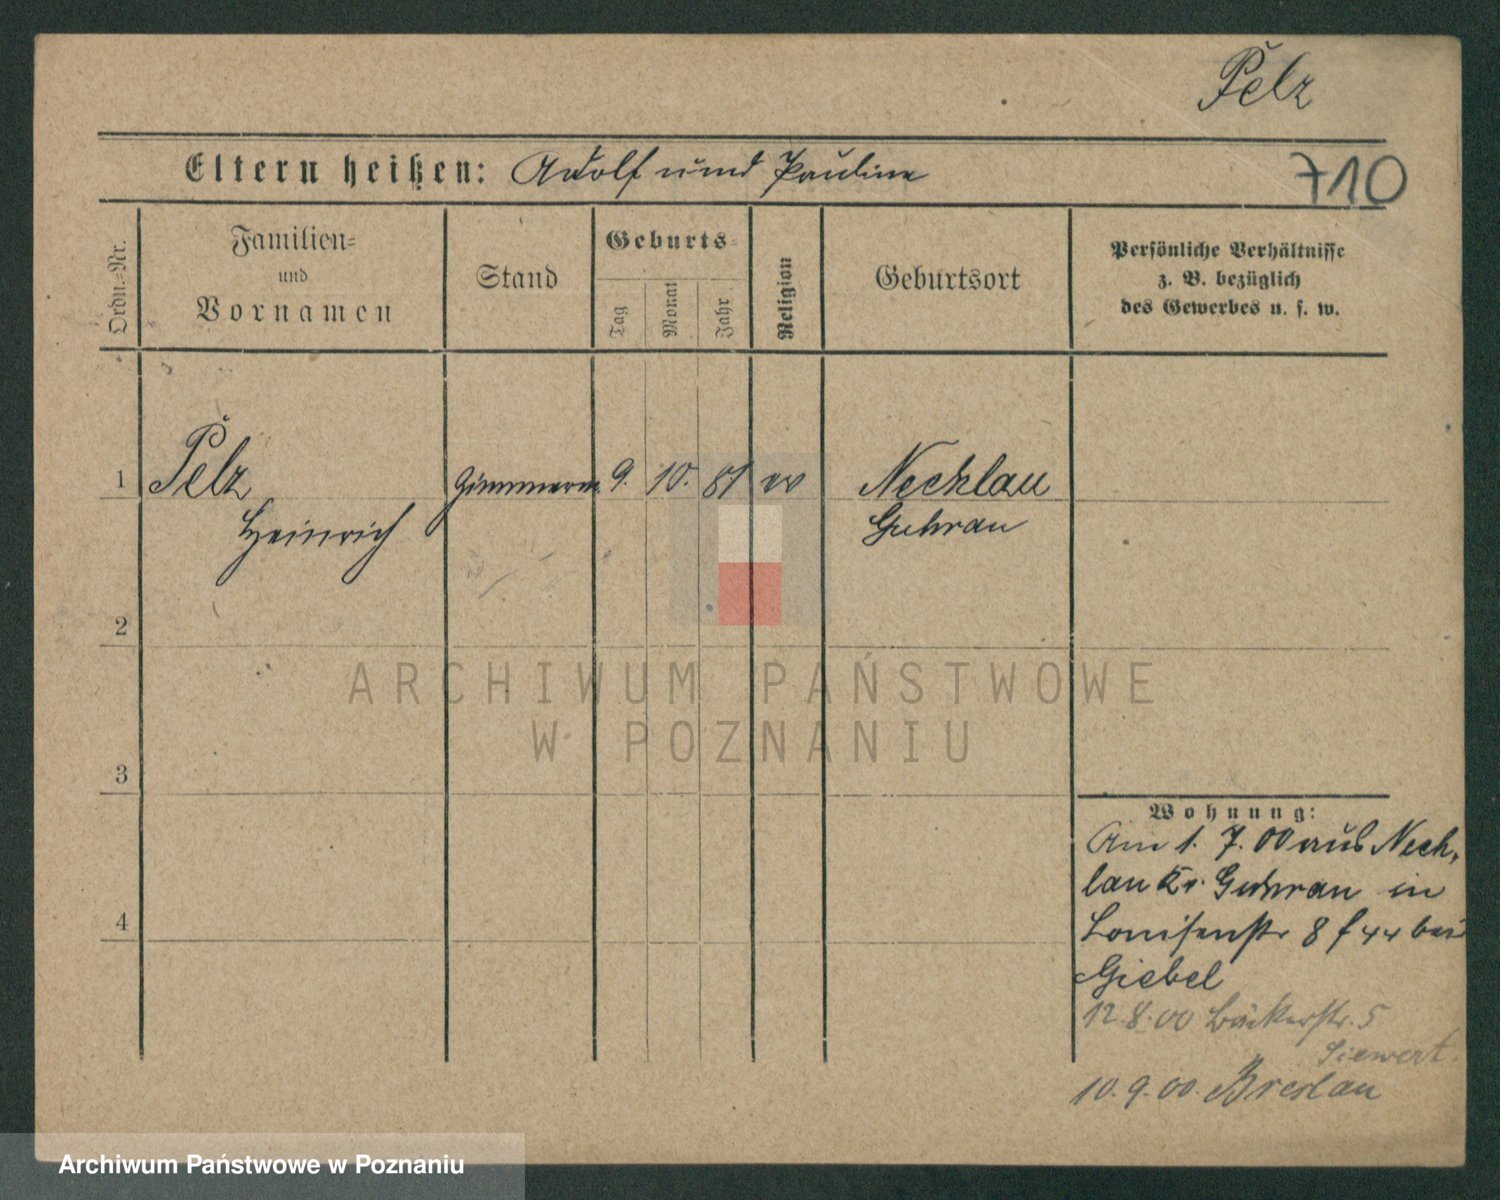 Pelz
710
Eltern heißen: Adolf und Pauline
Ordn.-Nr.
Familien-
und
Vornamen
Stand
Geburts-
Tag
Monat
Jahr
Religion
Geburtsort
Persönliche Verhältnisse
z. B. bezüglich
des Gewerbes u. s. w.
1 Pelz Zimmerm. 9. 10. 81 ev Nechlau
Heinrich Guhrau
2
ARCHIWUM PAŃSTWOWE
W POZNANIU
3
Wohnung:
Am 1. 7. 00 aus Nech,
lau Kr. Guhrau in
Louisenstr 8 f 44 bei
Giebel
4
12.8.00 Bäckerstr. 5
Siewert.
10.9.00. Breslau
Archiwum Państwowe w Poznaniu